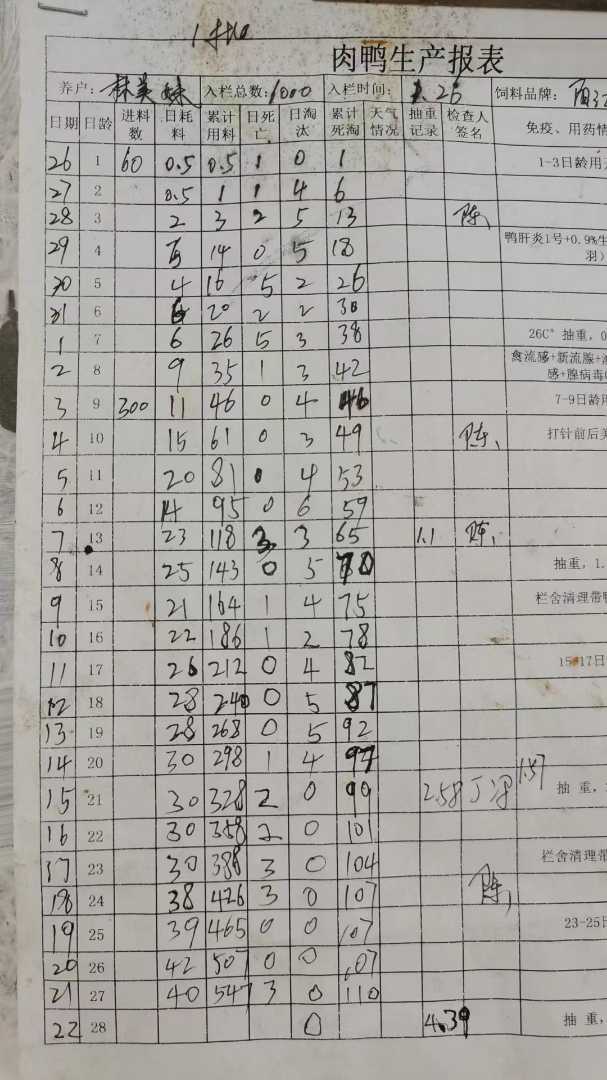 肉鸭生产报表
养户: 林美妹 入栏总数: 1000 入栏时间: 1.25 饲料品牌:
日期 日龄 进料数 日耗料 累计用料 日死亡 日淘汰 累计死淘 天气情况 抽重记录 检查人签名 免疫、用药情
26 1 60 0.5 0.5 1 0 1 1-3日龄用
27 2 0.5 1 1 4 6
28 3 2 3 2 5 13 陈
29 4 14 0 5 18 鸭肝炎1号+0.9%生
羽）
30 5 4 16 5 2 26
31 6 6 20 2 2 30
1 7 6 26 5 3 38 26C° 抽重，0
2 8 9 35 1 3 42 禽流感+新流腺+
感+腺病毒
3 9 300 11 46 0 4 46 7-9日龄用
4 10 15 61 0 3 49 陈 打针前后
5 11 20 81 0 4 53
6 12 14 95 0 6 59
7 13 23 118 3 3 65 1.1 陈
8 14 25 143 0 5 70 抽重，1.
9 15 21 164 1 4 75 栏舍清理带
10 16 22 186 1 2 78
11 17 26 212 0 4 82 15-17日
12 18 28 240 0 5 87
13 19 28 268 0 5 92
14 20 30 298 1 4 97
15 21 30 328 2 0 99 2.58 1.57 抽重，
16 22 30 358 2 0 101
17 23 30 388 3 0 104 栏舍清理带
18 24 38 426 3 0 107 陈
19 25 39 465 0 0 107 23-25日
20 26 42 507 0 0 107
21 27 40 547 3 0 110
22 28 0 4.39 抽重，